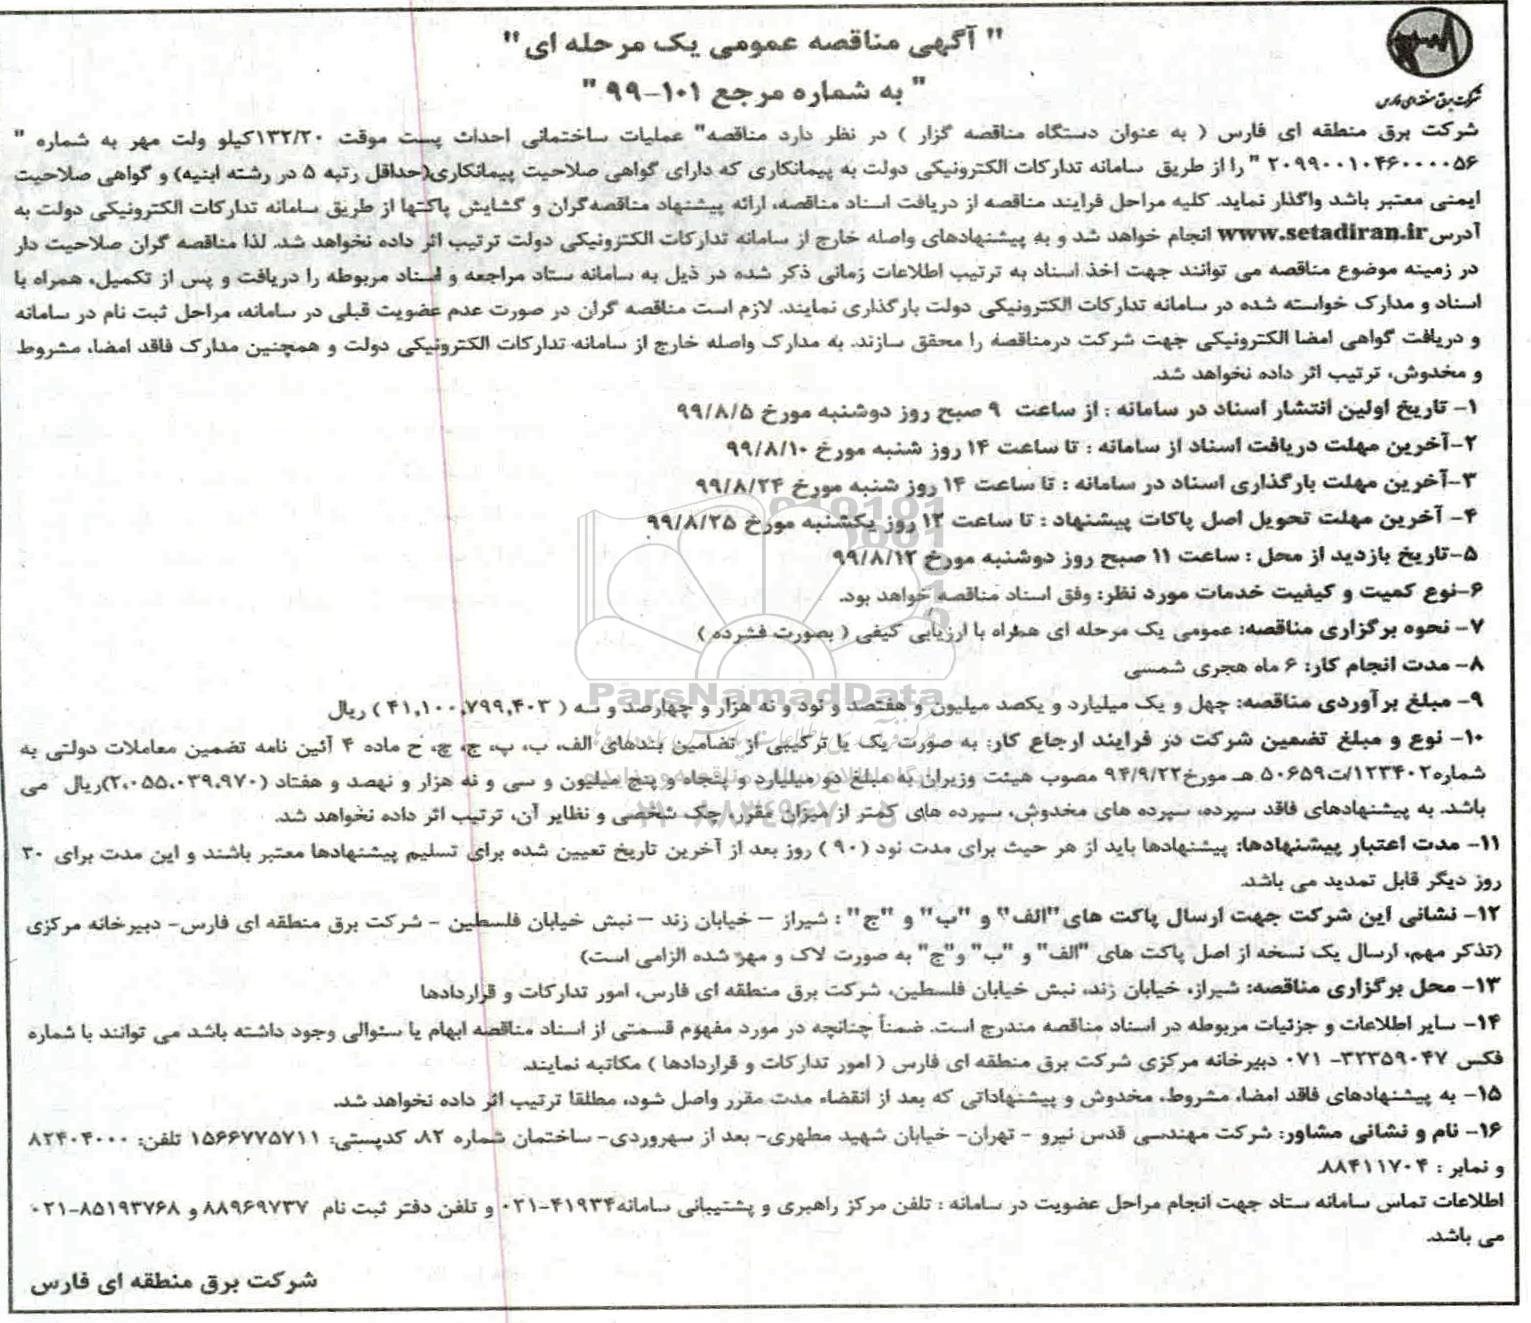 شرکت برق منطقه ای فارس
" آگهی مناقصه عمومی یک مرحله ای"
" به شماره مرجع ۱۰۱-۹۹ "
شرکت برق منطقه ای فارس ( به عنوان دستگاه مناقصه گزار ) در نظر دارد مناقصه" عملیات ساختمانی احداث پست موقت ۱۳۲/۲۰کیلو ولت مهر به شماره "
۲۰۹۹۰۰۱۰۴۶۰۰۰۰۵۶ " را از طریق سامانه تدارکات الکترونیکی دولت به پیمانکاری که دارای گواهی صلاحیت پیمانکاری(حداقل رتبه ۵ در رشته ابنیه) و گواهی صلاحیت
ایمنی معتبر باشد واگذار نماید. کلیه مراحل فرایند مناقصه از دریافت اسناد مناقصه، ارائه پیشنهاد مناقصه‌گران و گشایش پاکتها از طریق سامانه تدارکات الکترونیکی دولت به
آدرس www.setadiran.ir انجام خواهد شد و به پیشنهادهای واصله خارج از سامانه تدارکات الکترونیکی دولت ترتیب اثر داده نخواهد شد. لذا مناقصه گران صلاحیت دار
در زمینه موضوع مناقصه می توانند جهت اخذ اسناد به ترتیب اطلاعات زمانی ذکر شده در ذیل به سامانه ستاد مراجعه و اسناد مربوطه را دریافت و پس از تکمیل، همراه با
اسناد و مدارک خواسته شده در سامانه تدارکات الکترونیکی دولت بارگذاری نمایند. لازم است مناقصه گران در صورت عدم عضویت قبلی در سامانه، مراحل ثبت نام در سامانه
و دریافت گواهی امضا الکترونیکی جهت شرکت درمناقصه را محقق سازند. به مدارک واصله خارج از سامانه تدارکات الکترونیکی دولت و همچنین مدارک فاقد امضا، مشروط
و مخدوش، ترتیب اثر داده نخواهد شد.
۱- تاریخ اولین انتشار اسناد در سامانه : از ساعت ۹ صبح روز دوشنبه مورخ ۹۹/۸/۵
۲-آخرین مهلت دریافت اسناد از سامانه : تا ساعت ۱۴ روز شنبه مورخ ۹۹/۸/۱۰
۳-آخرین مهلت بارگذاری اسناد در سامانه : تا ساعت ۱۴ روز شنبه مورخ ۹۹/۸/۲۴
۴- آخرین مهلت تحویل اصل پاکات پیشنهاد : تا ساعت ۱۳ روز یکشنبه مورخ ۹۹/۸/۲۵
۵-تاریخ بازدید از محل : ساعت ۱۱ صبح روز دوشنبه مورخ ۹۹/۸/۱۲
۶-نوع کمیت و کیفیت خدمات مورد نظر: وفق اسناد مناقصه خواهد بود.
۷- نحوه برگزاری مناقصه: عمومی یک مرحله ای همراه با ارزیابی کیفی ( بصورت فشرده )
۸- مدت انجام کار: ۶ ماه هجری شمسی
ParsNamadData
۹- مبلغ برآوردی مناقصه: چهل و یک میلیارد و یکصد میلیون و هفتصد و نود و نه هزار و چهارصد و سه ( ۴۱,۱۰۰,۷۹۹,۴۰۳ ) ریال
۱۰- نوع و مبلغ تضمین شرکت در فرایند ارجاع کار: به صورت یک یا ترکیبی از تضامین بندهای الف، ب، پ، ج، چ، ح ماده ۴ آئین نامه تضمین معاملات دولتی به
شماره۱۲۳۴۰۲/ت۵۰۶۵۹ هـ مورخ۹۴/۹/۲۲ مصوب هیئت وزیران به مبلغ دو میلیارد و پنجاه و پنج میلیون و سی و نه هزار و نهصد و هفتاد (۲،۰۵۵،۰۳۹،۹۷۰)ریال می
باشد. به پیشنهادهای فاقد سپرده، سپرده های مخدوش، سپرده های کمتر از میزان مقرر، چک شخصی و نظایر آن، ترتیب اثر داده نخواهد شد.
۱۱- مدت اعتبار پیشنهادها: پیشنهادها باید از هر حیث برای مدت نود (۹۰ ) روز بعد از آخرین تاریخ تعیین شده برای تسلیم پیشنهادها معتبر باشند و این مدت برای ۳۰
روز دیگر قابل تمدید می باشد.
۱۲- نشانی این شرکت جهت ارسال پاکت های"الف" و "ب" و "ج" : شیراز – خیابان زند –نبش خیابان فلسطین - شرکت برق منطقه ای فارس- دبیرخانه مرکزی
(تذکر مهم، ارسال یک نسخه از اصل پاکت های "الف" و "ب" و"ج" به صورت لاک و مهر شده الزامی است)
۱۳- محل برگزاری مناقصه: شیراز، خیابان زند، نبش خیابان فلسطین، شرکت برق منطقه ای فارس، امور تدارکات و قراردادها
۱۴- سایر اطلاعات و جزئیات مربوطه در اسناد مناقصه مندرج است. ضمناً چنانچه در مورد مفهوم قسمتی از اسناد مناقصه ابهام یا سئوالی وجود داشته باشد می توانند با شماره
فکس ۳۲۳۵۹۰۴۷- ۰۷۱ دبیرخانه مرکزی شرکت برق منطقه ای فارس ( امور تدارکات و قراردادها ) مکاتبه نمایند.
۱۵- به پیشنهادهای فاقد امضا، مشروط، مخدوش و پیشنهاداتی که بعد از انقضاء مدت مقرر واصل شود، مطلقا ترتیب اثر داده نخواهد شد.
۱۶- نام و نشانی مشاور: شرکت مهندسی قدس نیرو - تهران- خیابان شهید مطهری- بعد از سهروردی- ساختمان شماره ۸۲، کدپستی: ۱۵۶۶۷۷۵۷۱۱ تلفن: ۸۲۴۰۴۰۰۰
و نمابر : ۸۸۴۱۱۷۰۴
اطلاعات تماس سامانه ستاد جهت انجام مراحل عضویت در سامانه : تلفن مرکز راهبری و پشتیبانی سامانه۴۱۹۳۴-۰۲۱ و تلفن دفتر ثبت نام ۸۸۹۶۹۷۳۷ و ۸۵۱۹۳۷۶۸-۰۲۱
می باشد.
شرکت برق منطقه ای فارس